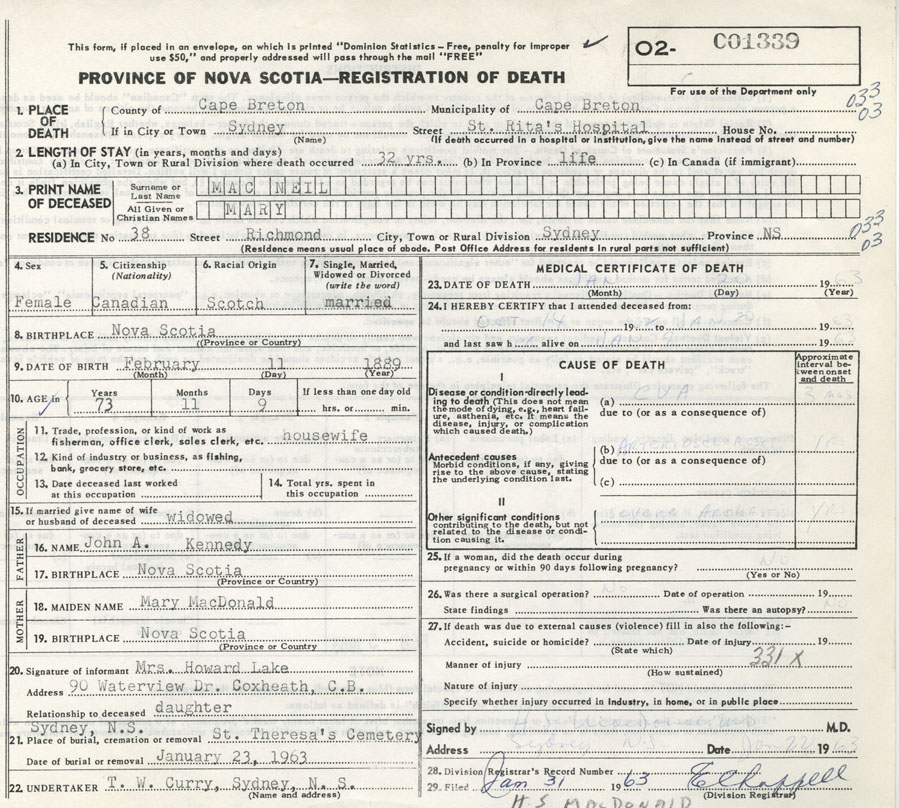 This form, if placed in an envelope, on which is printed "Dominion Statistics – Free, penalty for improper
use $50," and properly addressed will pass through the mail "FREE"
O2- C01339
For use of the Department only
PROVINCE OF NOVA SCOTIA—REGISTRATION OF DEATH
1. PLACE OF DEATH
County of Cape Breton Municipality of Cape Breton
033
03
If in City or Town Sydney Street St. Rita's Hospital House No.
(Name) (If death occurred in a hospital or institution, give the name instead of street and number)
2. LENGTH OF STAY (in years, months and days)
(a) In City, Town or Rural Division where death occurred 32 yrs. (b) In Province life (c) In Canada (if immigrant)
3. PRINT NAME OF DECEASED
Surname or Last Name MAC NEIL
All Given or Christian Names MARY
RESIDENCE No 38 Street Richmond City, Town or Rural Division Sydney Province NS
033
03
(Residence means usual place of abode. Post Office Address for residents in rural parts not sufficient)
4. Sex
Female
5. Citizenship
(Nationality)
Canadian
6. Racial Origin
Scotch
7. Single, Married,
Widowed or Divorced
(write the word)
married
8. BIRTHPLACE Nova Scotia
(Province or Country)
9. DATE OF BIRTH February 11 1889
(Month) (Day) (Year)
10. AGE in
Years Months Days If less than one day old
73 11 9 hrs. or min.
OCCUPATION
11. Trade, profession, or kind of work as
fisherman, office clerk, sales clerk, etc. housewife
12. Kind of industry or business, as fishing,
bank, grocery store, etc.
13. Date deceased last worked
at this occupation
14. Total yrs. spent in
this occupation
15. If married give name of wife
or husband of deceased widowed
FATHER
16. NAME John A. Kennedy
17. BIRTHPLACE Nova Scotia
(Province or Country)
MOTHER
18. MAIDEN NAME Mary MacDonald
19. BIRTHPLACE Nova Scotia
(Province or Country
20. Signature of informant Mrs. Howard Lake
Address 90 Waterview Dr. Coxheath, C.B.
Relationship to deceased daughter
Sydney, N.S.
21. Place of burial, cremation or removal St. Theresa's Cemetery
Date of burial or removal January 23, 1963
22. UNDERTAKER T. W. Curry, Sydney, N. S.
(Name and address)
MEDICAL CERTIFICATE OF DEATH
23. DATE OF DEATH JAN 20 19 3
(Month) (Day) (Year)
24. I HEREBY CERTIFY that I attended deceased from:
OCT 14 19 62 to JAN 20 19 63
and last saw h alive on JAN 19
CAUSE OF DEATH
Approximate
interval be-
tween onset
and death
I
Disease or condition-directly lead-
ing to death (This does not mean
the mode of dying, e.g., heart fail-
ure, asthenia, etc. It means the
disease, injury, or complication
which caused death.)
(a) CVA
due to (or as a consequence of)
Antecedent causes
Morbid conditions, if any, giving
rise to the above cause, stating
the underlying condition last.
(b) YRS
due to (or as a consequence of)
(c)
II
Other significant conditions
contributing to the death, but not
related to the disease or condi-
tion causing it.
YRS
25. If a woman, did the death occur during
pregnancy or within 90 days following pregnancy? No
(Yes or No)
26. Was there a surgical operation? No Date of operation 19
State findings Was there an autopsy? No
27. If death was due to external causes (violence) fill in also the following:–
Accident, suicide or homicide? Date of injury 19
(State which)
Manner of injury 331 X
(How sustained)
Nature of injury
Specify whether injury occurred in Industry, in home, or in public place
Signed by M.D.
Address Sydney N.S Date Jan 22 19 63
28. Division Registrar's Record Number
29. Filed Jan 31 19 63 E Chappell
(Division Registrar)
H. S. MACDONALD